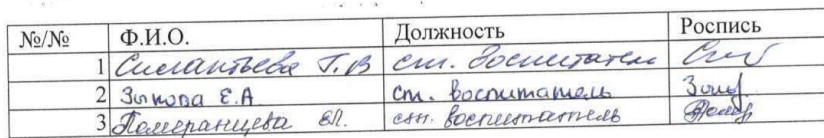 №/№ Ф.И.О. Должность Роспись
1 Силантьева Т.В ст. воспитатель
2 Зыкова Е.А ст. воспитатель
3 Померанцева ЕЛ. ст. воспитатель